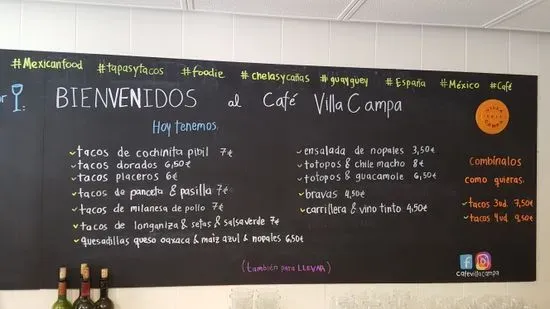 #Mexicanfood #tapasytacos #foodie #chelasycañas #guayguey #España #México #Café
BIENVENIDOS al Café Villa Campa
Hoy tenemos
tacos de cochinita pibil 7€
tacos dorados 6,50€
tacos placeros 6€
tacos de panceta & pasilla 7€
tacos de milanesa de pollo 7€
tacos de longaniza & setas & salsa verde 7€
quesadillas queso oaxaca & maiz azul & nopales 6,50€
ensalada de nopales 3,50€
totopos & chile macho 8€
totopos & guacamole 6,50€
bravas 4,50€
carrillera & vino tinto 4,50€
VILLA
CAMPA
Combínalos
como quieras.
tacos 3ud. 7,50€
tacos 4ud. 9,50€
(también para LLEVAR)
cafevillacampa